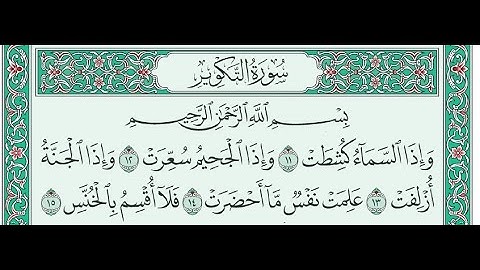 سُورَةُ التَّكْوِيرِ
بِسْمِ اللَّهِ الرَّحْمَٰنِ الرَّحِيمِ
وَإِذَا السَّمَآءُ كُشِطَتْ ١١ وَإِذَا الْجَحِيمُ سُعِّرَتْ ١٢ وَإِذَا الْجَنَّةُ
أُزْلِفَتْ ١٣ عَلِمَتْ نَفْسٌ مَّآ أَحْضَرَتْ ١٤ فَلَآ أُقْسِمُ بِالْخُنَّسِ ١٥